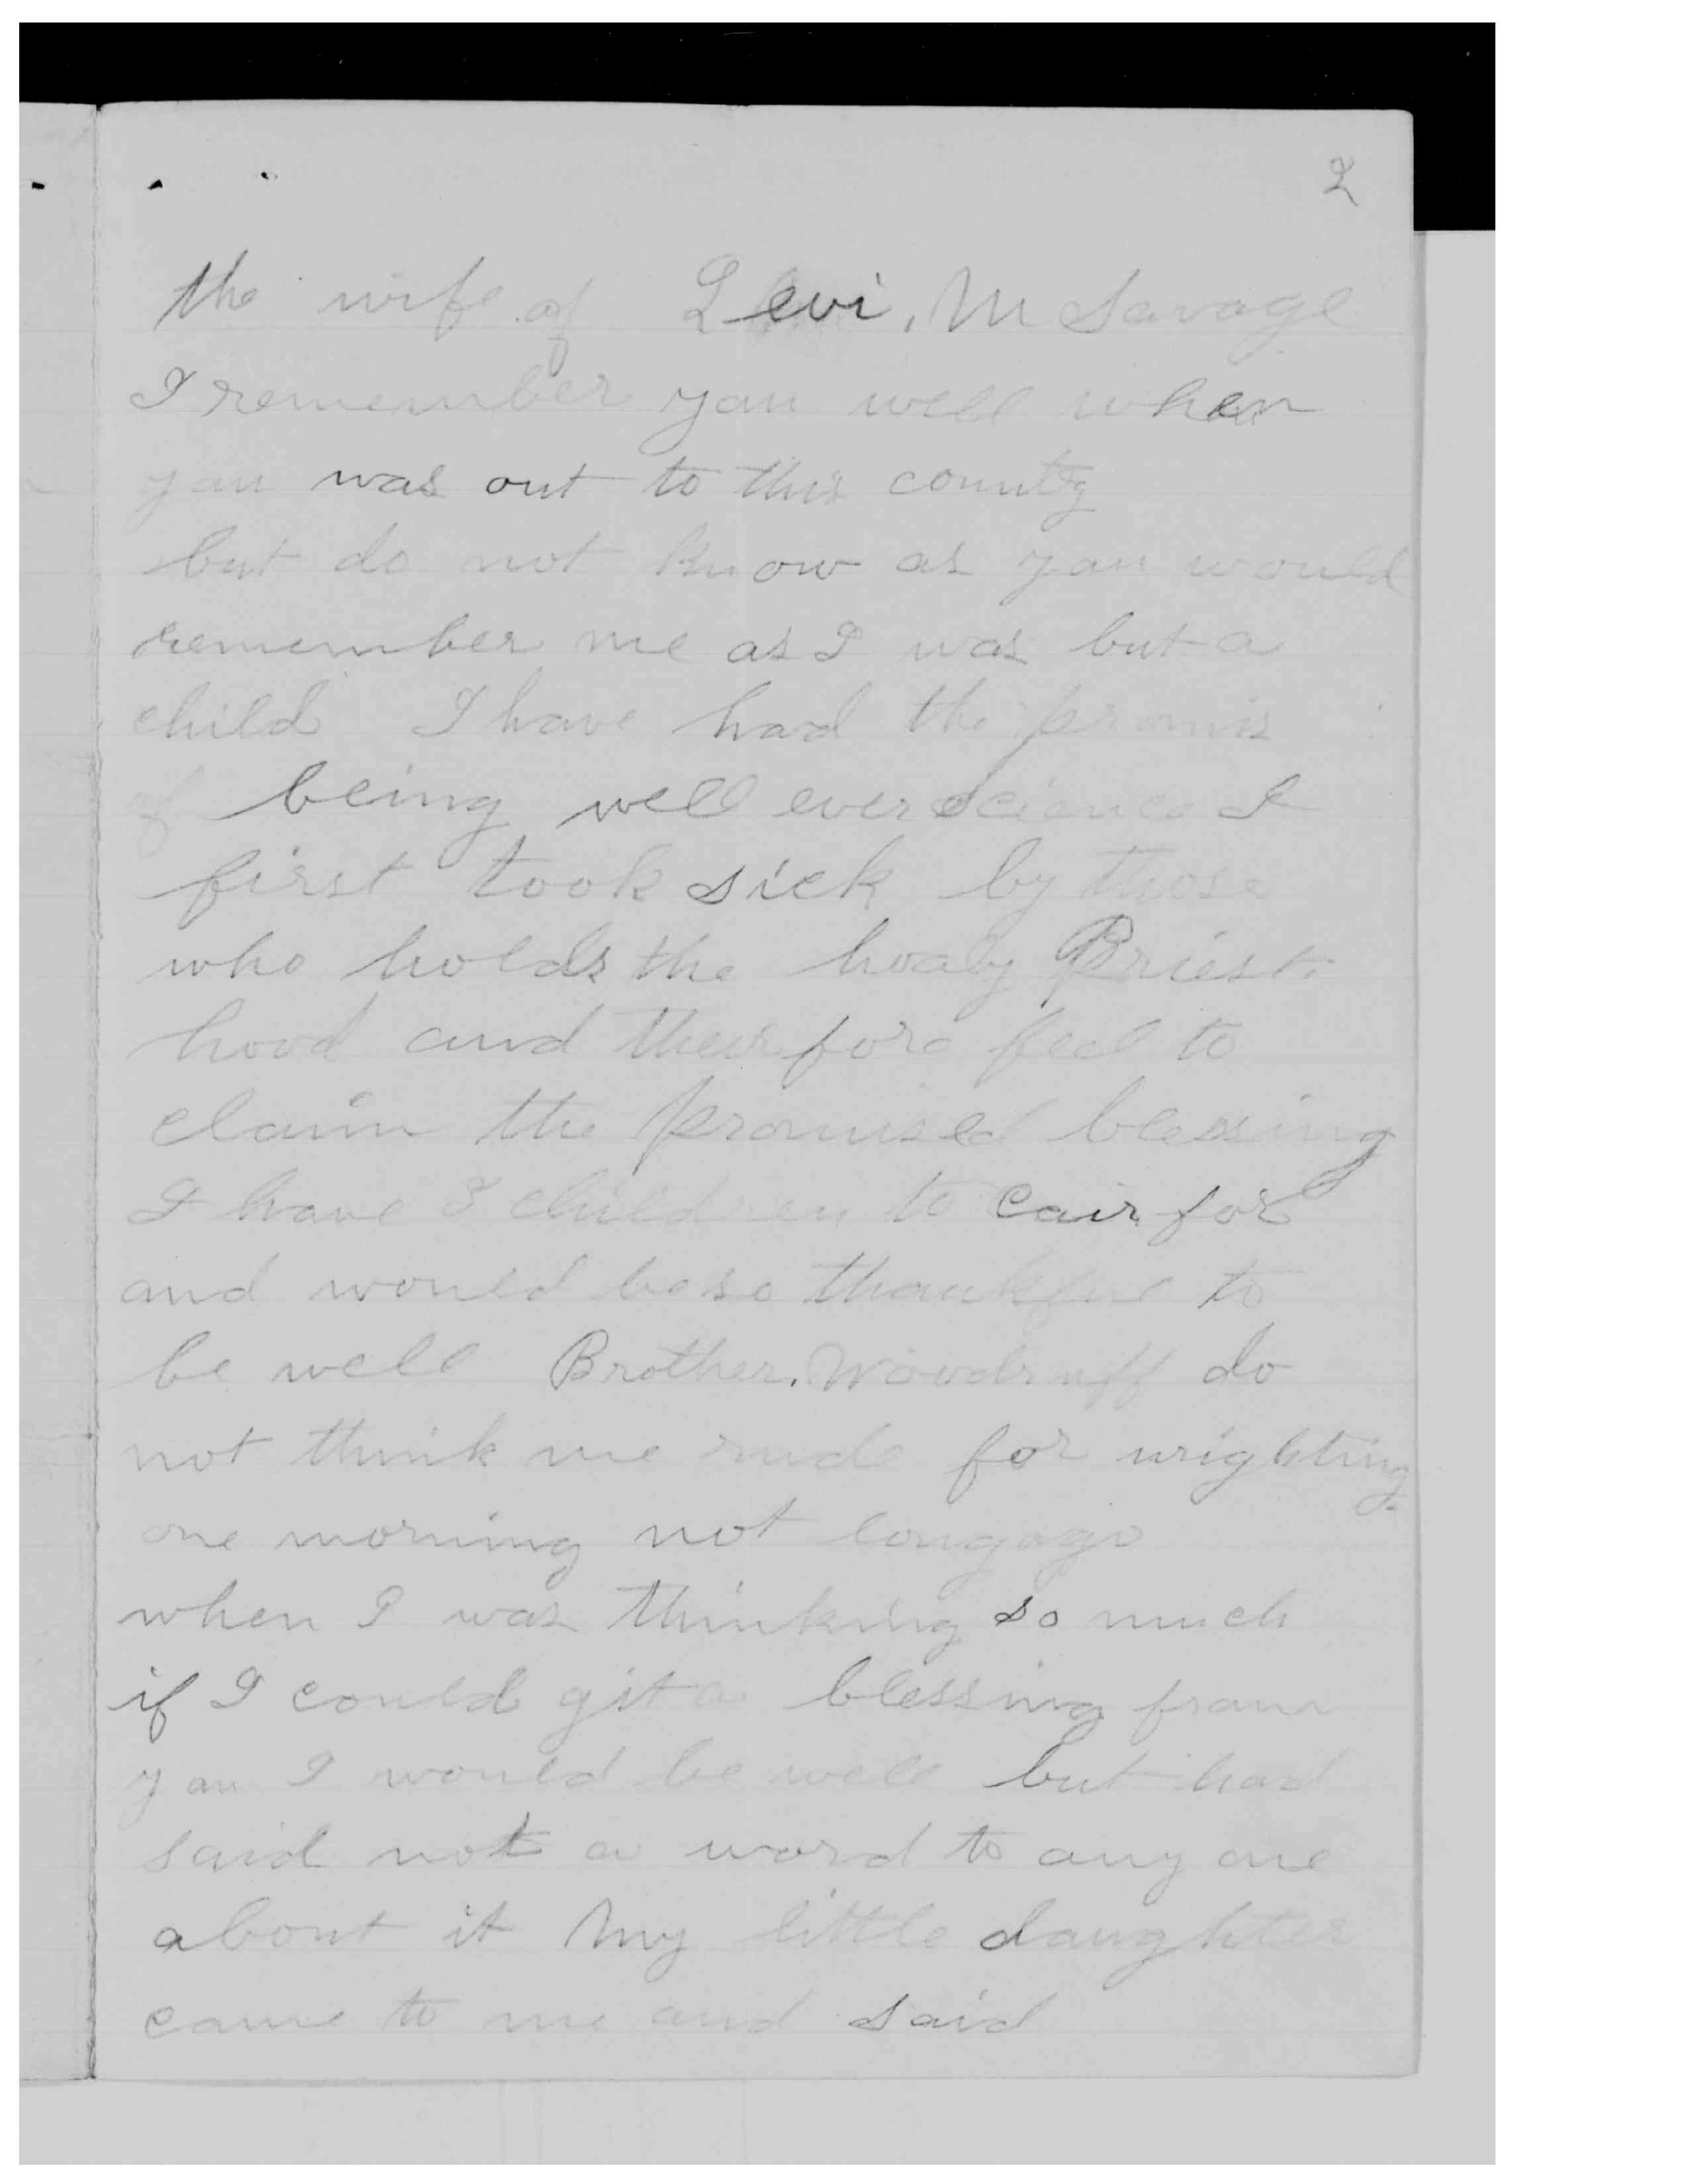 2
the wife of Levi. M Savage
I remember you well when
you was out to this country
but do not know as you would
remember me as I was but a
child I have had the promis
of being well ever science I
first took sick by those
who holds the hoaly Priest
hood and theirfore feel to
claim the promised blessing
I have children to cair for
and would be so thankful to
be well Brother. Woodruff do
not think me rude for wrighting
one morning not long ago
when I was thinking so much
if I could git a blessing from
you I would be well but had
said not a word to any one
about it My little daughter
came to me and said